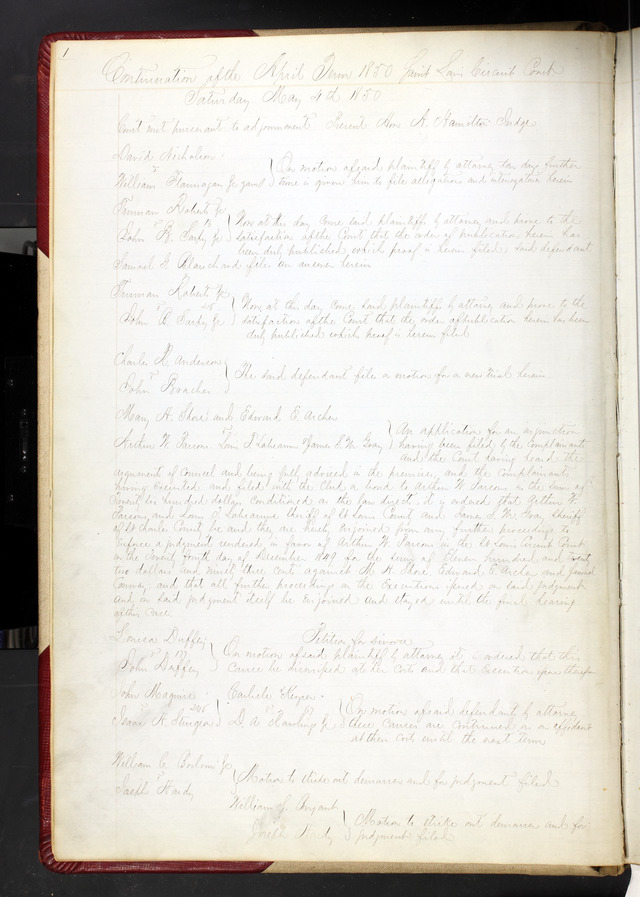 1
Continuation of the April Term 1850 Saint Louis Circuit Court
Saturday May 4th 1850
Court met pursuant to adjournment Present Hon A. Hamilton Judge
David Nicholson
vs
William Flannagan Jr garns
On motion of said plaintiff by attorney ten day further
time is given him to file allegation and interrogatories herein
Truman Roberts Jr
vs
John B. Sarpy Jr
Now at this day come said plaintiffs by attorney and prove to the
satisfaction of the Court that the order of publication herein has
been duly published which proof is herein filed, said defendant
Samuel Blanchard files an answer herein
Truman Roberts Jr
vs
John B Sarpy Jr
Now at this day come said plaintiffs by attorney and prove to the
satisfaction of the Court that the order of publication herein has been
duly published which proof is herein filed
Charles R. Anderson
vs
John
The said defendant files a motion for a new trial herein
Mary H. and Edward E. Archer
vs
Arthur W. James S. W. Gray
An application for an injunction
having been filed by the complainants
and the Court having heard the
arguments of Counsel and being fully advised in the premises, and the complainants
having executed and filed with the Clerk a bond to Arthur W. in the sum of
hundred dollars conditioned as the law directs it is ordered that Arthur W.
and Louis Labeaume Sheriff of St Louis County and James S. W. Gray Sheriff
of St Charles County be and they are hereby enjoined from any further proceedings to
enforce a judgment rendered in favor of Arthur W. in the St Louis Circuit Court
on the Twenty fourth day of December 1849 for the sum of Eleven hundred and twenty
two dollars and ninety three cents against M. H. Edward E Archer and
and that all further proceedings in the Executions issued on said judgment
and on said judgment itself be enjoined and stayed until the final hearing
of this cause
Louisa Duffey
vs
John Duffey
Petition for divorce
On motion of said plaintiff by attorney it is ordered that this
cause be dismissed at her costs and that Execution issue therefor
John Maguire
vs
Isaac H. Sturgeon
Carlisle
vs
D. A. Rawlings Jr
On motion of said defendant by attorney
these causes are continued on an affidavit
at their costs until the next term
William C. Jr
vs
Joseph Hardy
Motion to strike out demurrer and for judgment filed
William J. Bryant
vs
Joseph Hardy
Motion to strike out demurrer and for
judgment filed